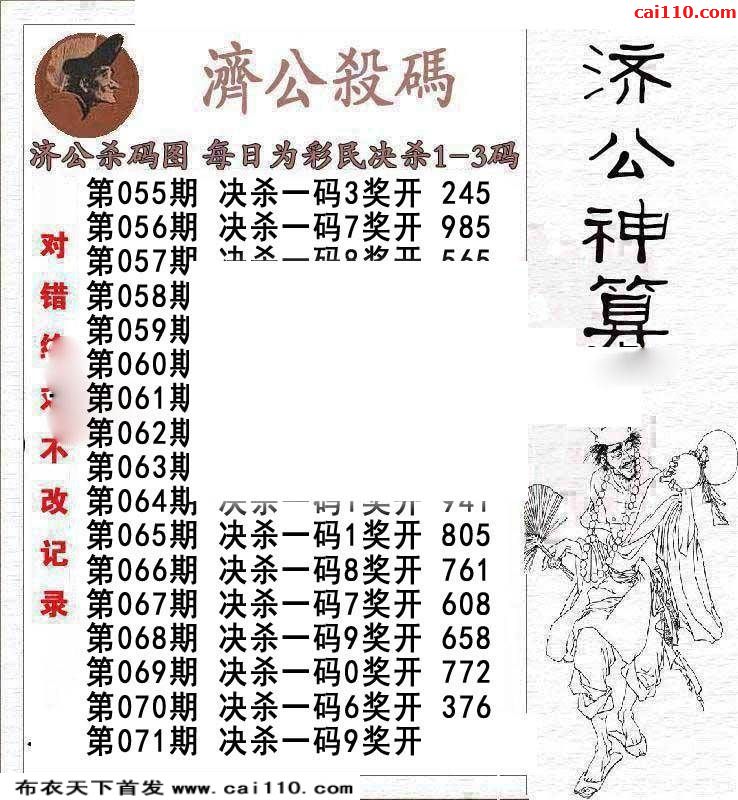 cai110.com
濟公殺碼
济公杀码图 每日为彩民决杀1-3码
第055期 决杀一码3奖开 245
第056期 决杀一码7奖开 985
第057期 决杀一码8奖开 565
第058期
第059期
第060期
第061期
第062期
第063期
第064期 决杀一码1奖开 941
第065期 决杀一码1奖开 805
第066期 决杀一码8奖开 761
第067期 决杀一码7奖开 608
第068期 决杀一码9奖开 658
第069期 决杀一码0奖开 772
第070期 决杀一码6奖开 376
第071期 决杀一码9奖开
对错
不改记录
济公神算
布衣天下首发 www.cai110.com